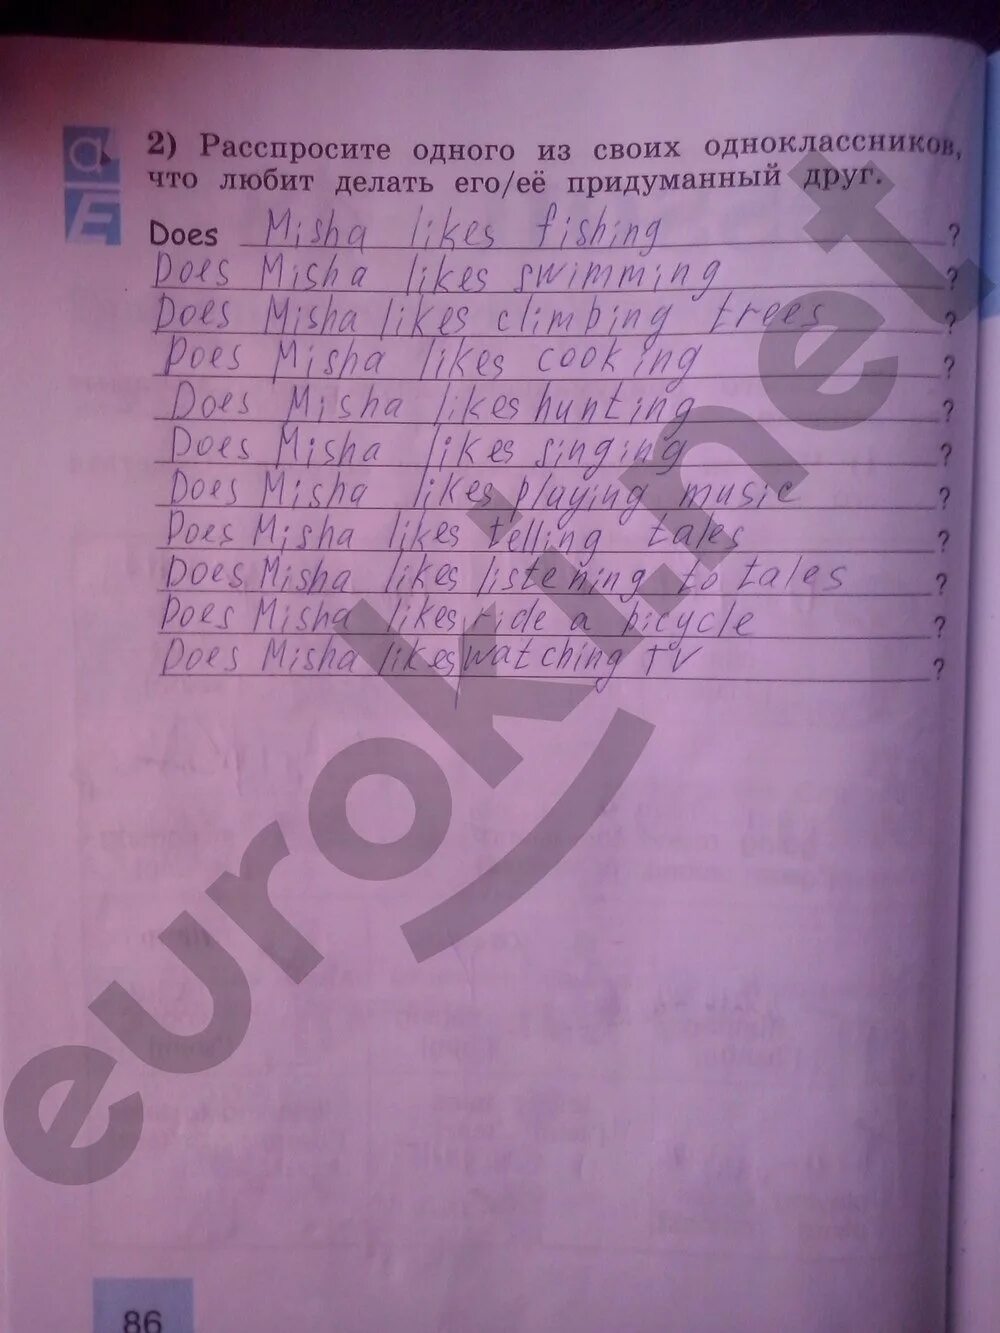 2) Расспросите одного из своих одноклассников,
что любит делать его/её придуманный друг.
Does Misha likes fishing ?
Does Misha likes swimming ?
Does Misha likes climbing trees ?
Does Misha likes cooking ?
Does Misha likes hunting ?
Does Misha likes singing ?
Does Misha likes playing music ?
Does Misha likes telling tales ?
Does Misha likes listening to tales ?
Does Misha likes ride a bicycle ?
Does Misha likes watching TV ?
euroki.net
86